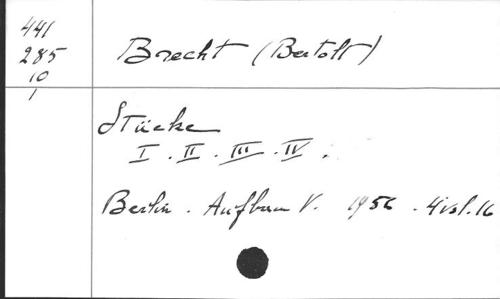 441
285
10
1
Brecht (Bertolt)
Stücke
I . II . III . IV .
Berlin . Aufbau V. 1956 . 4 vol. 16